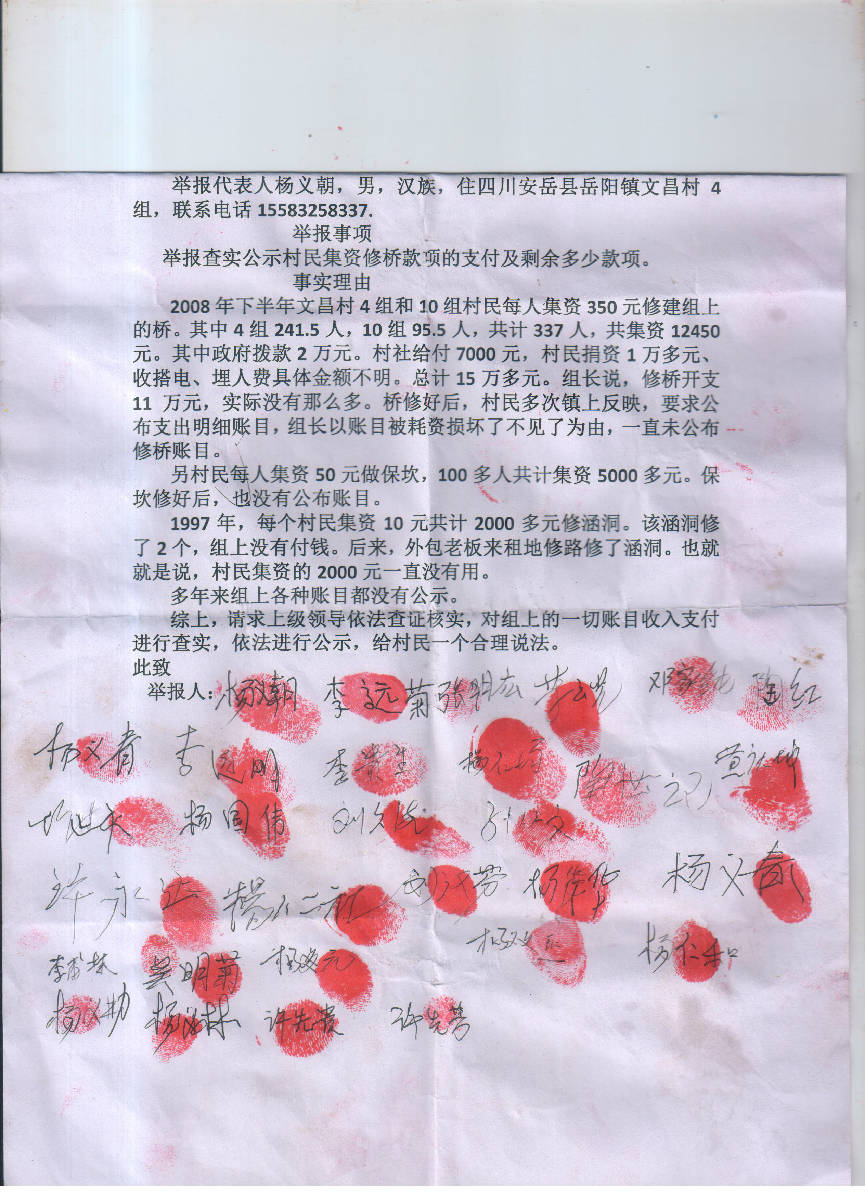 举报代表人杨义朝，男，汉族，住四川安岳县岳阳镇文昌村 4
组，联系电话 15583258337.
举报事项
举报查实公示村民集资修桥款项的支付及剩余多少款项。
事实理由
2008 年下半年文昌村 4 组和 10 组村民每人集资 350 元修建组上
的桥。其中 4 组 241.5 人，10 组 95.5 人，共计 337 人，共集资 12450
元。其中政府拨款 2 万元。村社给付 7000 元，村民捐资 1 万多元、
收搭电、埋人费具体金额不明。总计 15 万多元。组长说，修桥开支
11 万元，实际没有那么多。桥修好后，村民多次镇上反映，要求公
布支出明细账目，组长以账目被耗资损坏了不见了为由，一直未公布
修桥账目。
另村民每人集资 50 元做保坎，100 多人共计集资 5000 多元。保
坎修好后，也没有公布账目。
1997 年，每个村民集资 10 元共计 2000 多元修涵洞。该涵洞修
了 2 个，组上没有付钱。后来，外包老板来租地修路修了涵洞。也就
就是说，村民集资的 2000 元一直没有用。
多年来组上各种账目都没有公示。
综上，请求上级领导依法查证核实，对组上的一切账目收入支付
进行查实，依法进行公示，给村民一个合理说法。
此致
举报人：杨义朝 李远菊 张明宏
杨义春 李远明 李贵生
杨国伟
许永 杨义春
吴明菊 杨仁和
许先贵